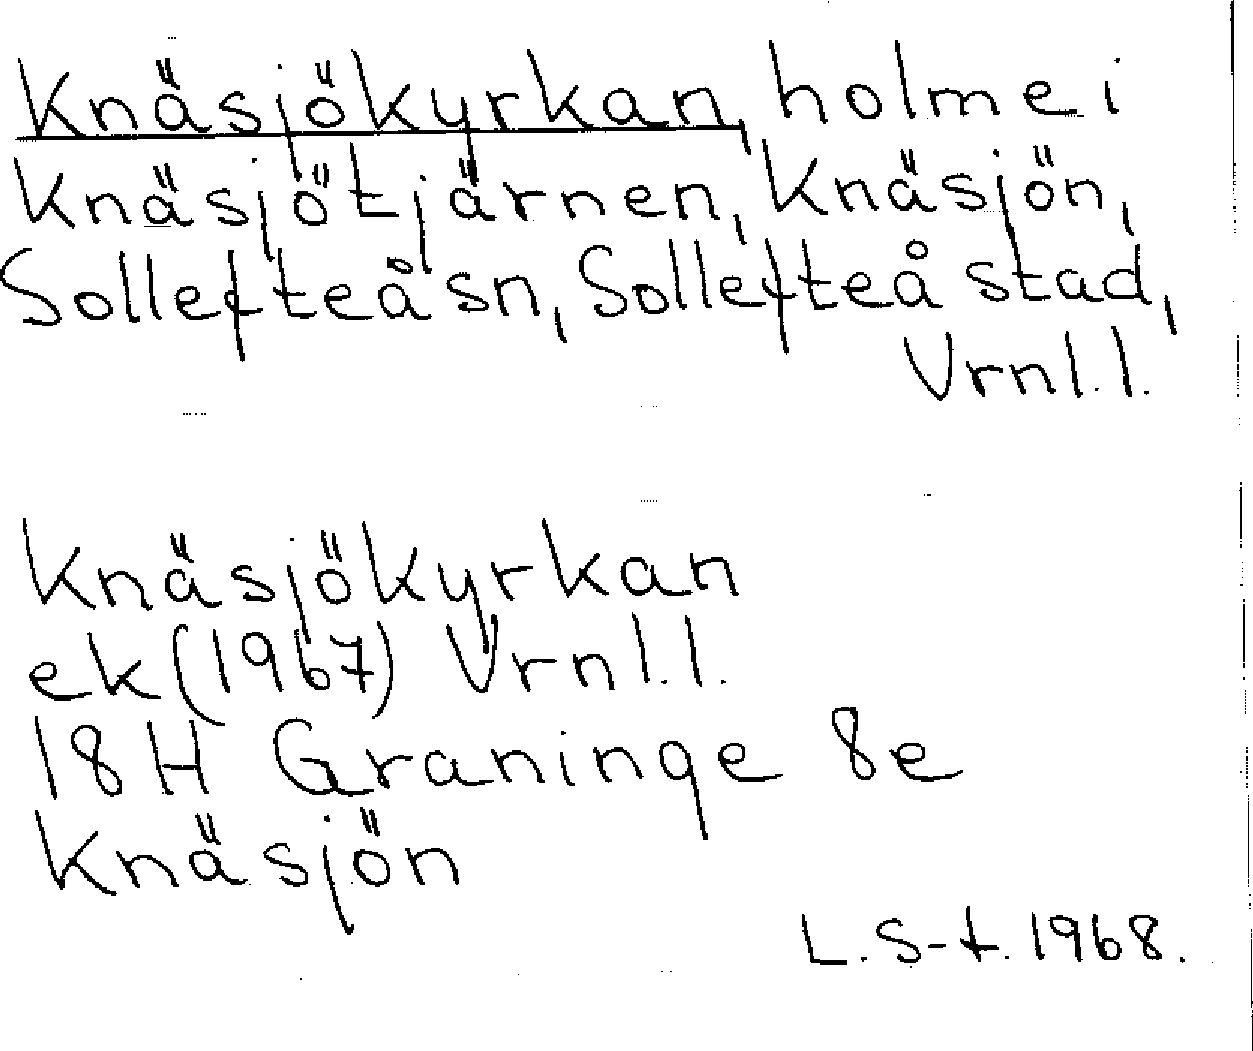 Knäsjökyrkan, holme i
Knäsjötjärnen, Knäsjön,
Sollefteå sn, Sollefteå stad,
Vrnl.l.
Knäsjökyrkan
ek (1967) Vrnl.l.
18H Graninge 8e
Knäsjön
L. S-t. 1968.